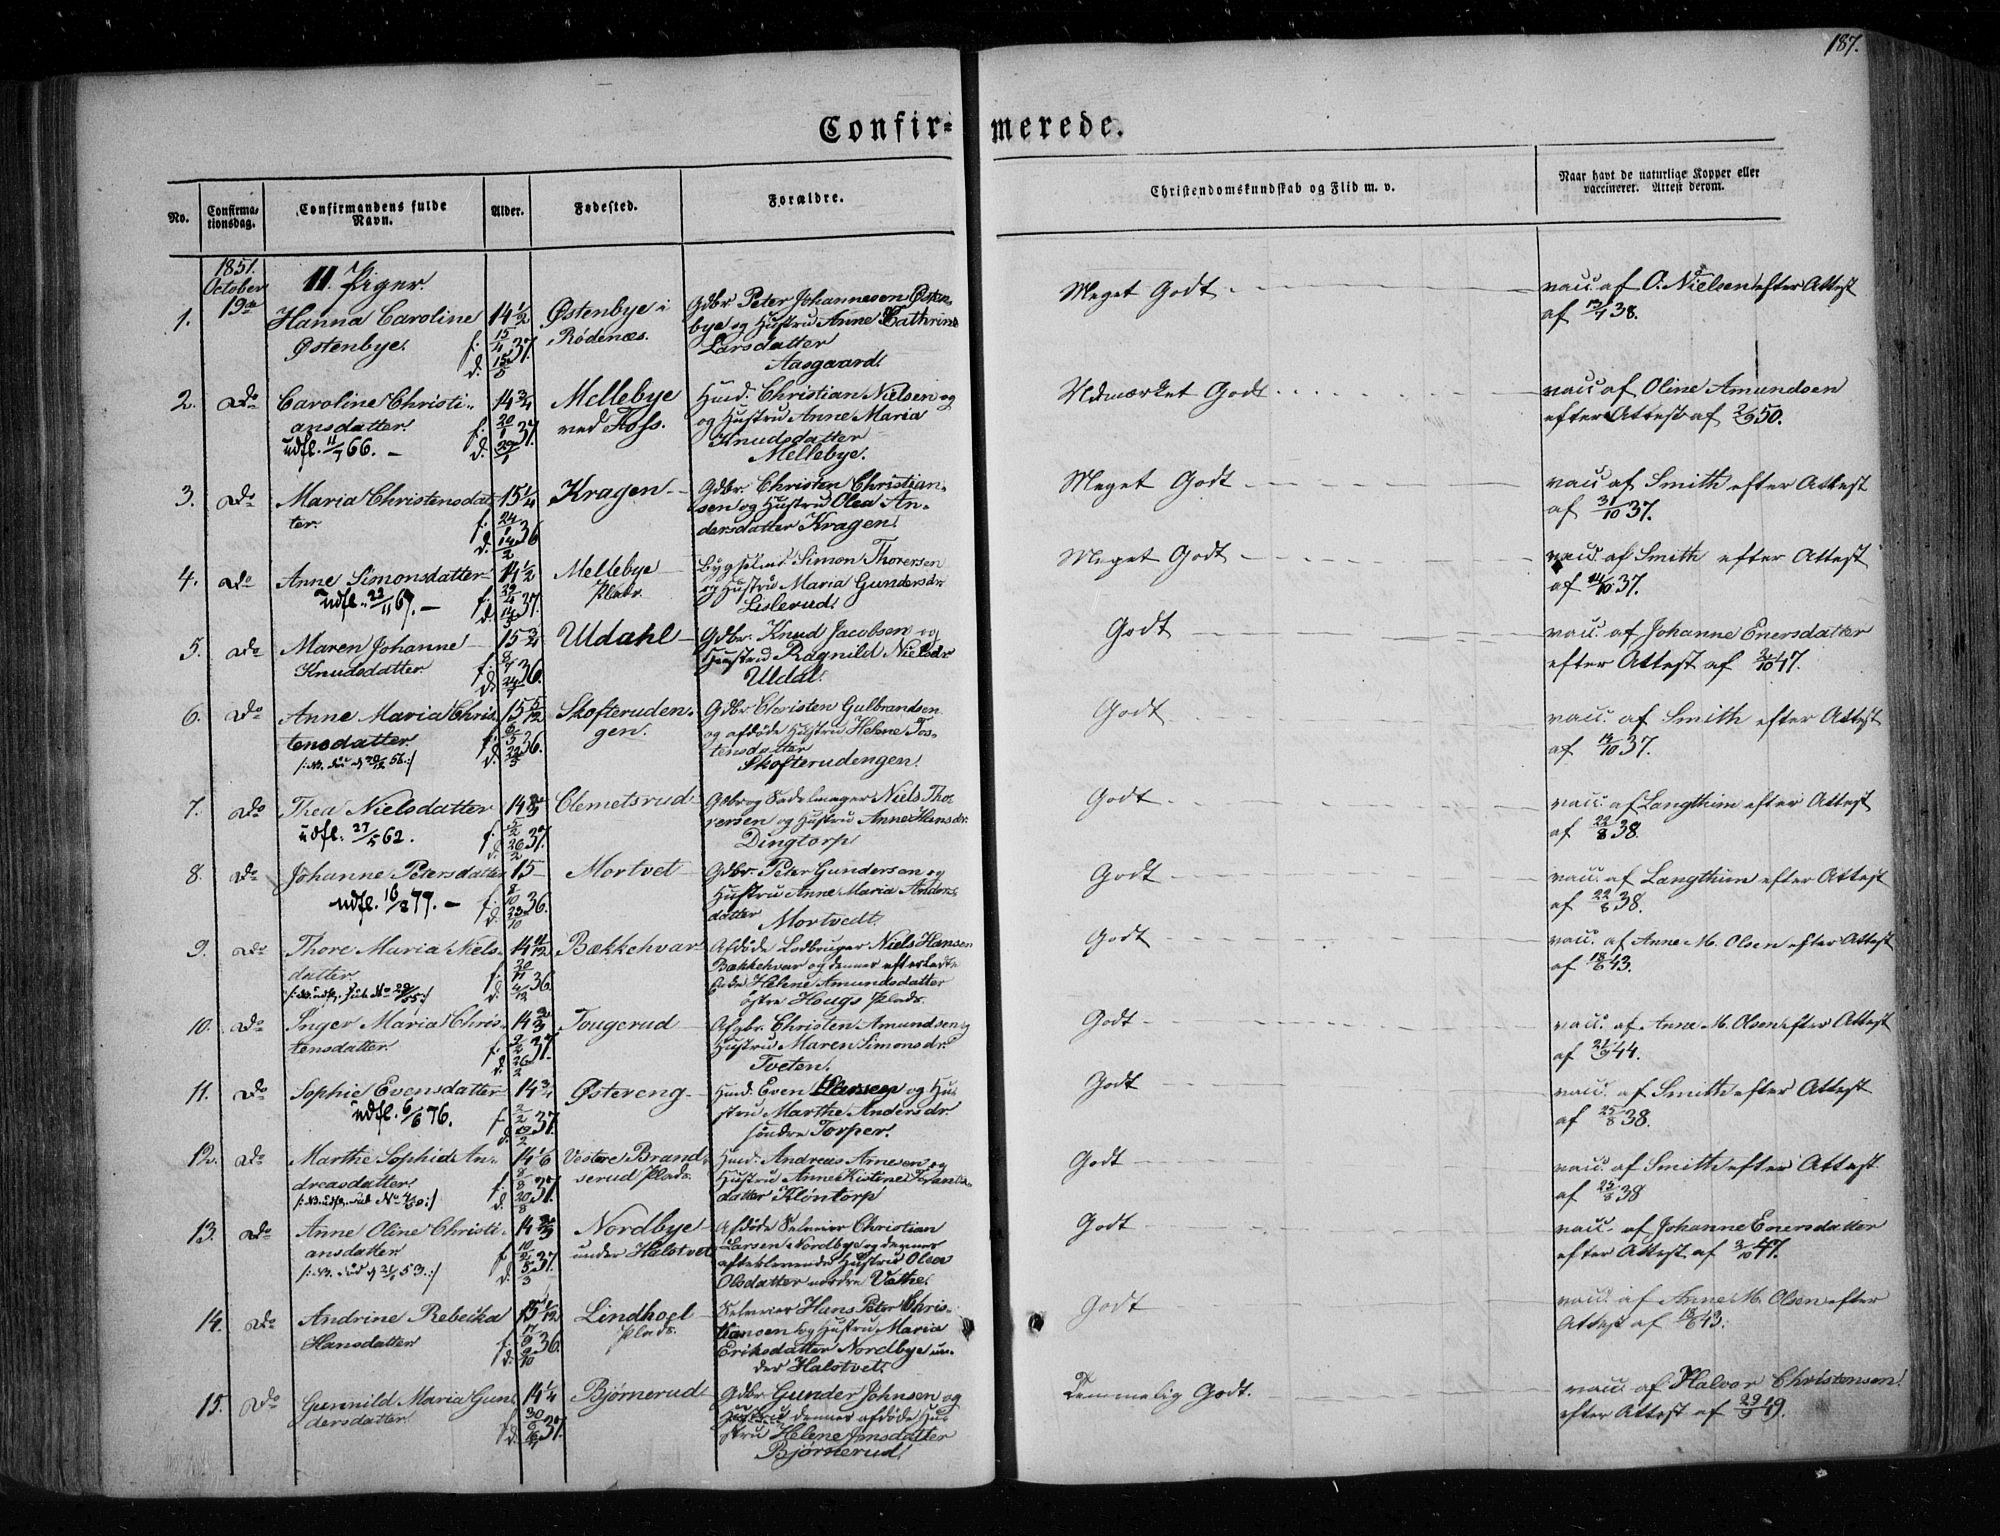 187.
Confirmerede.
No.
Confirma-
tionsdag.
Confirmandens fulde
Navn.
Alder.
Fødested.
Forældre.
Christendomskundskab og Flid m. v.
Naar havt de naturlige Kopper eller
vaccineret. Attest derom.
1851.
October
19de
II. Piger.
1.
Hanna Caroline
Østenbye.
14 1/2
f. 15/4 37.
d. 15/5
Østenbye i
Rødenæs.
Gdbr. Peter Johannesen Østen-
bye og Hustru Anne Cathrine
Larsdatter
Aasgaard.
Meget Godt
vacc. af O. Nielsen efter Attest
af 12/7 38.
2.
Do
Caroline Christi-
ansdatter.
udfl. 11/7 66. -
14 3/4
f. 20/1 37.
d. 29/1
Mellebye
ved Foss.
Huusd. Christian Nielsen og
og Hustru Anne Maria
Knudsdatter
Mellebye.
Udmærket Godt
vacc. af Oline Amundsen
efter Attest af 2/9 50.
3.
Do
Maria Christensdat-
ter.
15 1/4
f. 24/1 36
d. 14/2
Kragen
Gdbr. Christen Christian-
sen og Hustru Olea An-
dersdatter Kragen.
Meget Godt
vacc. af Smith efter Attest
af 31/10 37.
4.
Do
Anne Simonsdatter
udfl. 23/11 67. -
14 1/2
f. 22/4 37.
d. 14/5
Mellebye
Plads.
Simon Thoresen
og Hustru Maria Gundersdr.
Lislerud.
Meget Godt
vacc. af Smith efter Attest
af 11/10 37.
5.
Do
Maren Johanne
Knudsdatter
15 3/4
f. 8/1 36.
d. 24/1
Udahl
Gdbr. Knud Jacobsen og
Hustru Ragnild Nielsdr.
Udal.
Godt
vacc. af Johanne Enersdatter
efter Attest af 2/10 47.
6.
Do
Anne Maria Chris-
tensdatter.
15 5/12
f. 6/5 36.
d. 22/5
Skofteruden-
gen.
Gdbr. Christen Gulbrandsen
og afdøde Hustru Helene Tos-
tensdatter
Skofterudengen.
Godt
vacc. af Smith efter Attest
af 12/10 37.
7.
Do
Thea Nielsdatter
udfl. 27/5 62.
14 2/3
f. 5/2 37.
d. 26/2
Clemetsrud
Gdbr og Sadelmager Niels Tho-
rersen og Hustru Anne Hansdr.
Dingtorp
Godt
vacc. af Langthim efter Attest
af 22/8 38.
8.
Do
Johanne Petersdatter
udfl. 16/8 79. -
15
f. 8/10 36.
d. 23/10
Mortvet
Gdbr. Peter Gundersen og
Hustru Anne Maria Anders-
datter
Mortvedt.
Godt
vacc. af Langthim efter Attest
af 22/8 38.
9.
Do
Thore Maria Niels-
datter.
14 11/12
f. 20/11 36.
d. 4/12
Bækkehvar
Afdøde Lodbruger Niels Hansen
Bækkehvar og dennes efterladte
Enke Helene Amundsdatter
østre Hougs Plads.
Godt
vacc. af Anne M. Olsen efter Attest
af 18/6 43.
10.
Do
Inger Maria Chris-
tensdatter.
14 2/3
f. 2/2 37.
d. 26/2
Tougerud
Afgbr. Christen Amundsen og
Hustru Maren Simonsdr.
Tveten.
Godt
vacc. af Anne M. Olsen efter Attest
af 21/9 44.
11.
Do
Sophie Evensdatter
udfl. 6/6 76.
14 3/4
f. 2/2 37.
d. 19/2
Østereng
Huusd. Even Larsen og Hu-
stru Marthe Andersdr.
søndre Torper.
Godt
vacc. af Smith efter Attest
af 25/8 38.
12.
Do
Marthe Sophie An-
dreasdatter.
14 1/6
f. 8/8 37.
d. 20/8
Vestre Brand-
serud Plads.
Huusd. Andreas Arnesen og
Hustru Anne Kistine
datter Kløntorp
Godt
vacc. af Smith efter Attest
af 25/8 38
13.
Do
Anne Oline Christi-
ansdatter
14 2/3
f. 10/2 37.
d. 5/3
Nordbye
under Halstvet
Afdøde Selveier Christian
Larsen Nordbye og dennes
efterlevende Hustru Olea
Olsdatter nordre Vatne.
Godt
vacc. af Johanne Enersdatter
efter Attest af 2/10 47.
14.
Do
Andrine Rebecka
Hansdatter
15 1/12
f. 17/9 36.
d. 9/10
Lindhoel
Plads.
Selveier Hans Peter Chris-
tiansen og Hustru Maria
Eriksdatter Nordbye un-
der Halstvet.
Godt
vacc. af Anne M. Olsen efter
Attest af 18/6 43.
15.
Do
Gunnild Maria Gun-
dersdatter.
14 1/4
f. 30/6 37.
Bjørnerud
Gdbr. Gunder Johnsen og
Hustru dennes afdøde Hu-
stru Helene Jonsdatter
Bjørnerud.
Temmelig Godt.
vacc. af Halvor Christensen
efter Attest af 29/9 49.